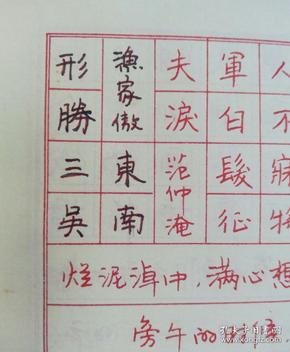 人不寐將
軍白髮征
夫淚范仲淹
漁家傲東南
形勝三吳
烂泥淖中,满心想
旁午的